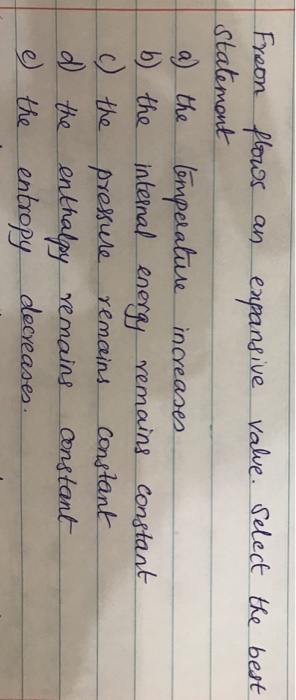 Freon flows an expansive value. Select the best
statement
a) the temperature increases
b) the internal energy remains constant
c) the pressure remains constant
d) the enthalpy remains constant
e) the entropy decreases.